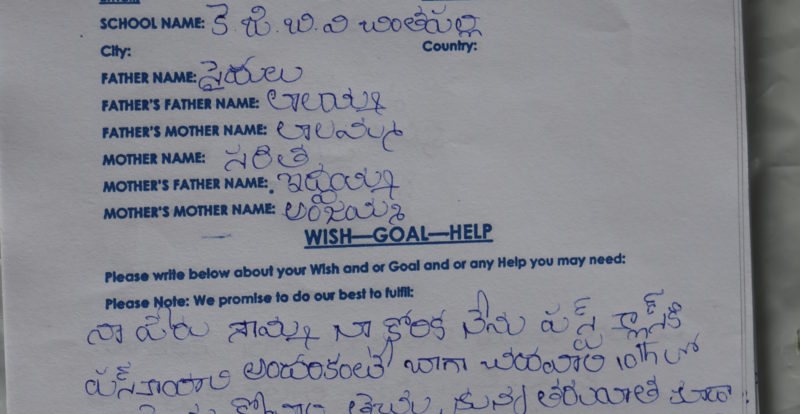 SCHOOL NAME: కె జి. బి. వి చింతపల్లి
City: Country:
FATHER NAME: సైదులు
FATHER'S FATHER NAME: లాలయ్య
FATHER'S MOTHER NAME: లాలమ్మ
MOTHER NAME: సరిత
MOTHER'S FATHER NAME: ఇద్దయ్య
MOTHER'S MOTHER NAME: అంజయమ్మ
WISH—GOAL—HELP
Please write below about your Wish and or Goal and or any Help you may need:
Please Note: We promise to do our best to fulfil:
నా పేరు సామ్య నా కోరిక నేను ఫస్ట్ క్లాస్‌కి
ఫస్ రావాలి అందరికంటే బాగా చదవాలి 10th లో
తరువాత కూడా